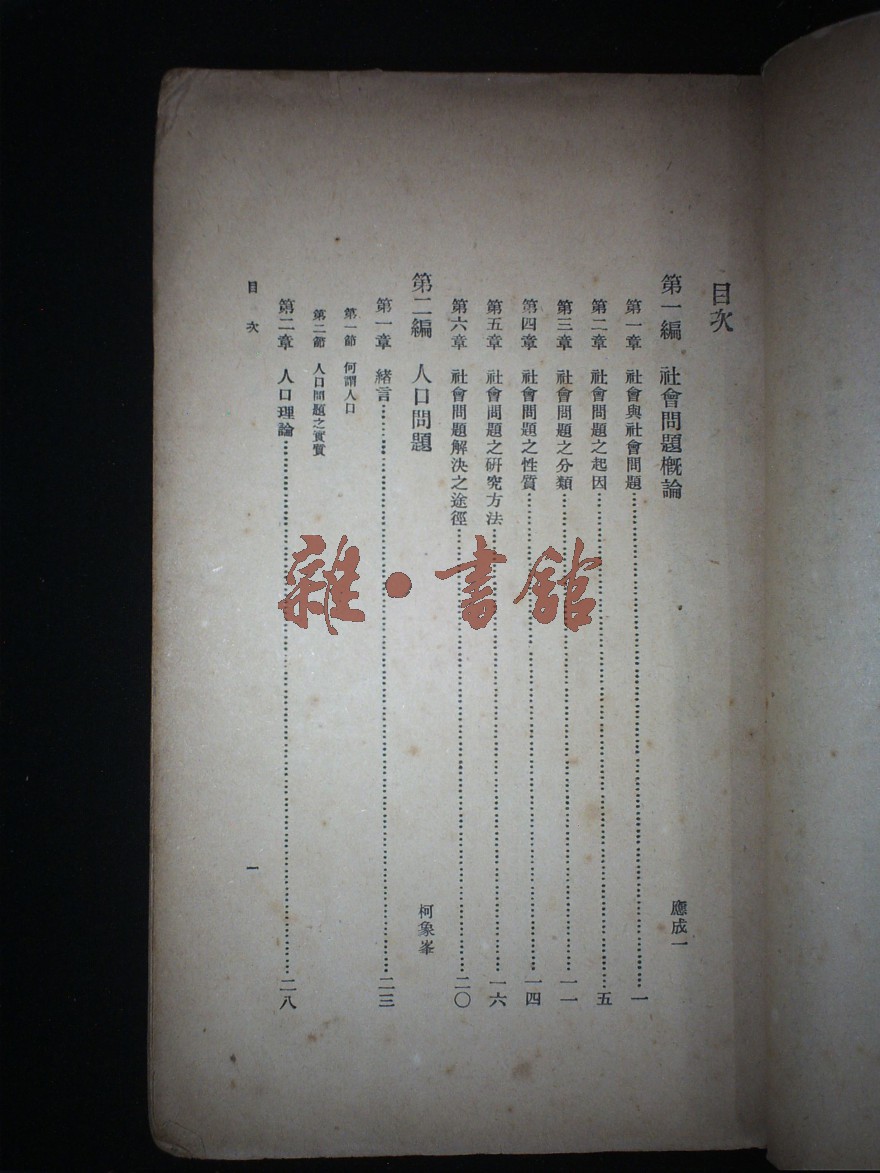 目次
第一編 社會問題概論 應成一
第一章 社會與社會問題 一
第二章 社會問題之起因 五
第三章 社會問題之分類 一一
第四章 社會問題之性質 一四
第五章 社會問題之研究方法 一六
第六章 社會問題解決之途徑 二〇
第二編 人口問題 柯象峯
第一章 緒言 二三
第一節 何謂人口
第二節 人口問題之實質
第二章 人口理論 二八
目次 一
雜·書館